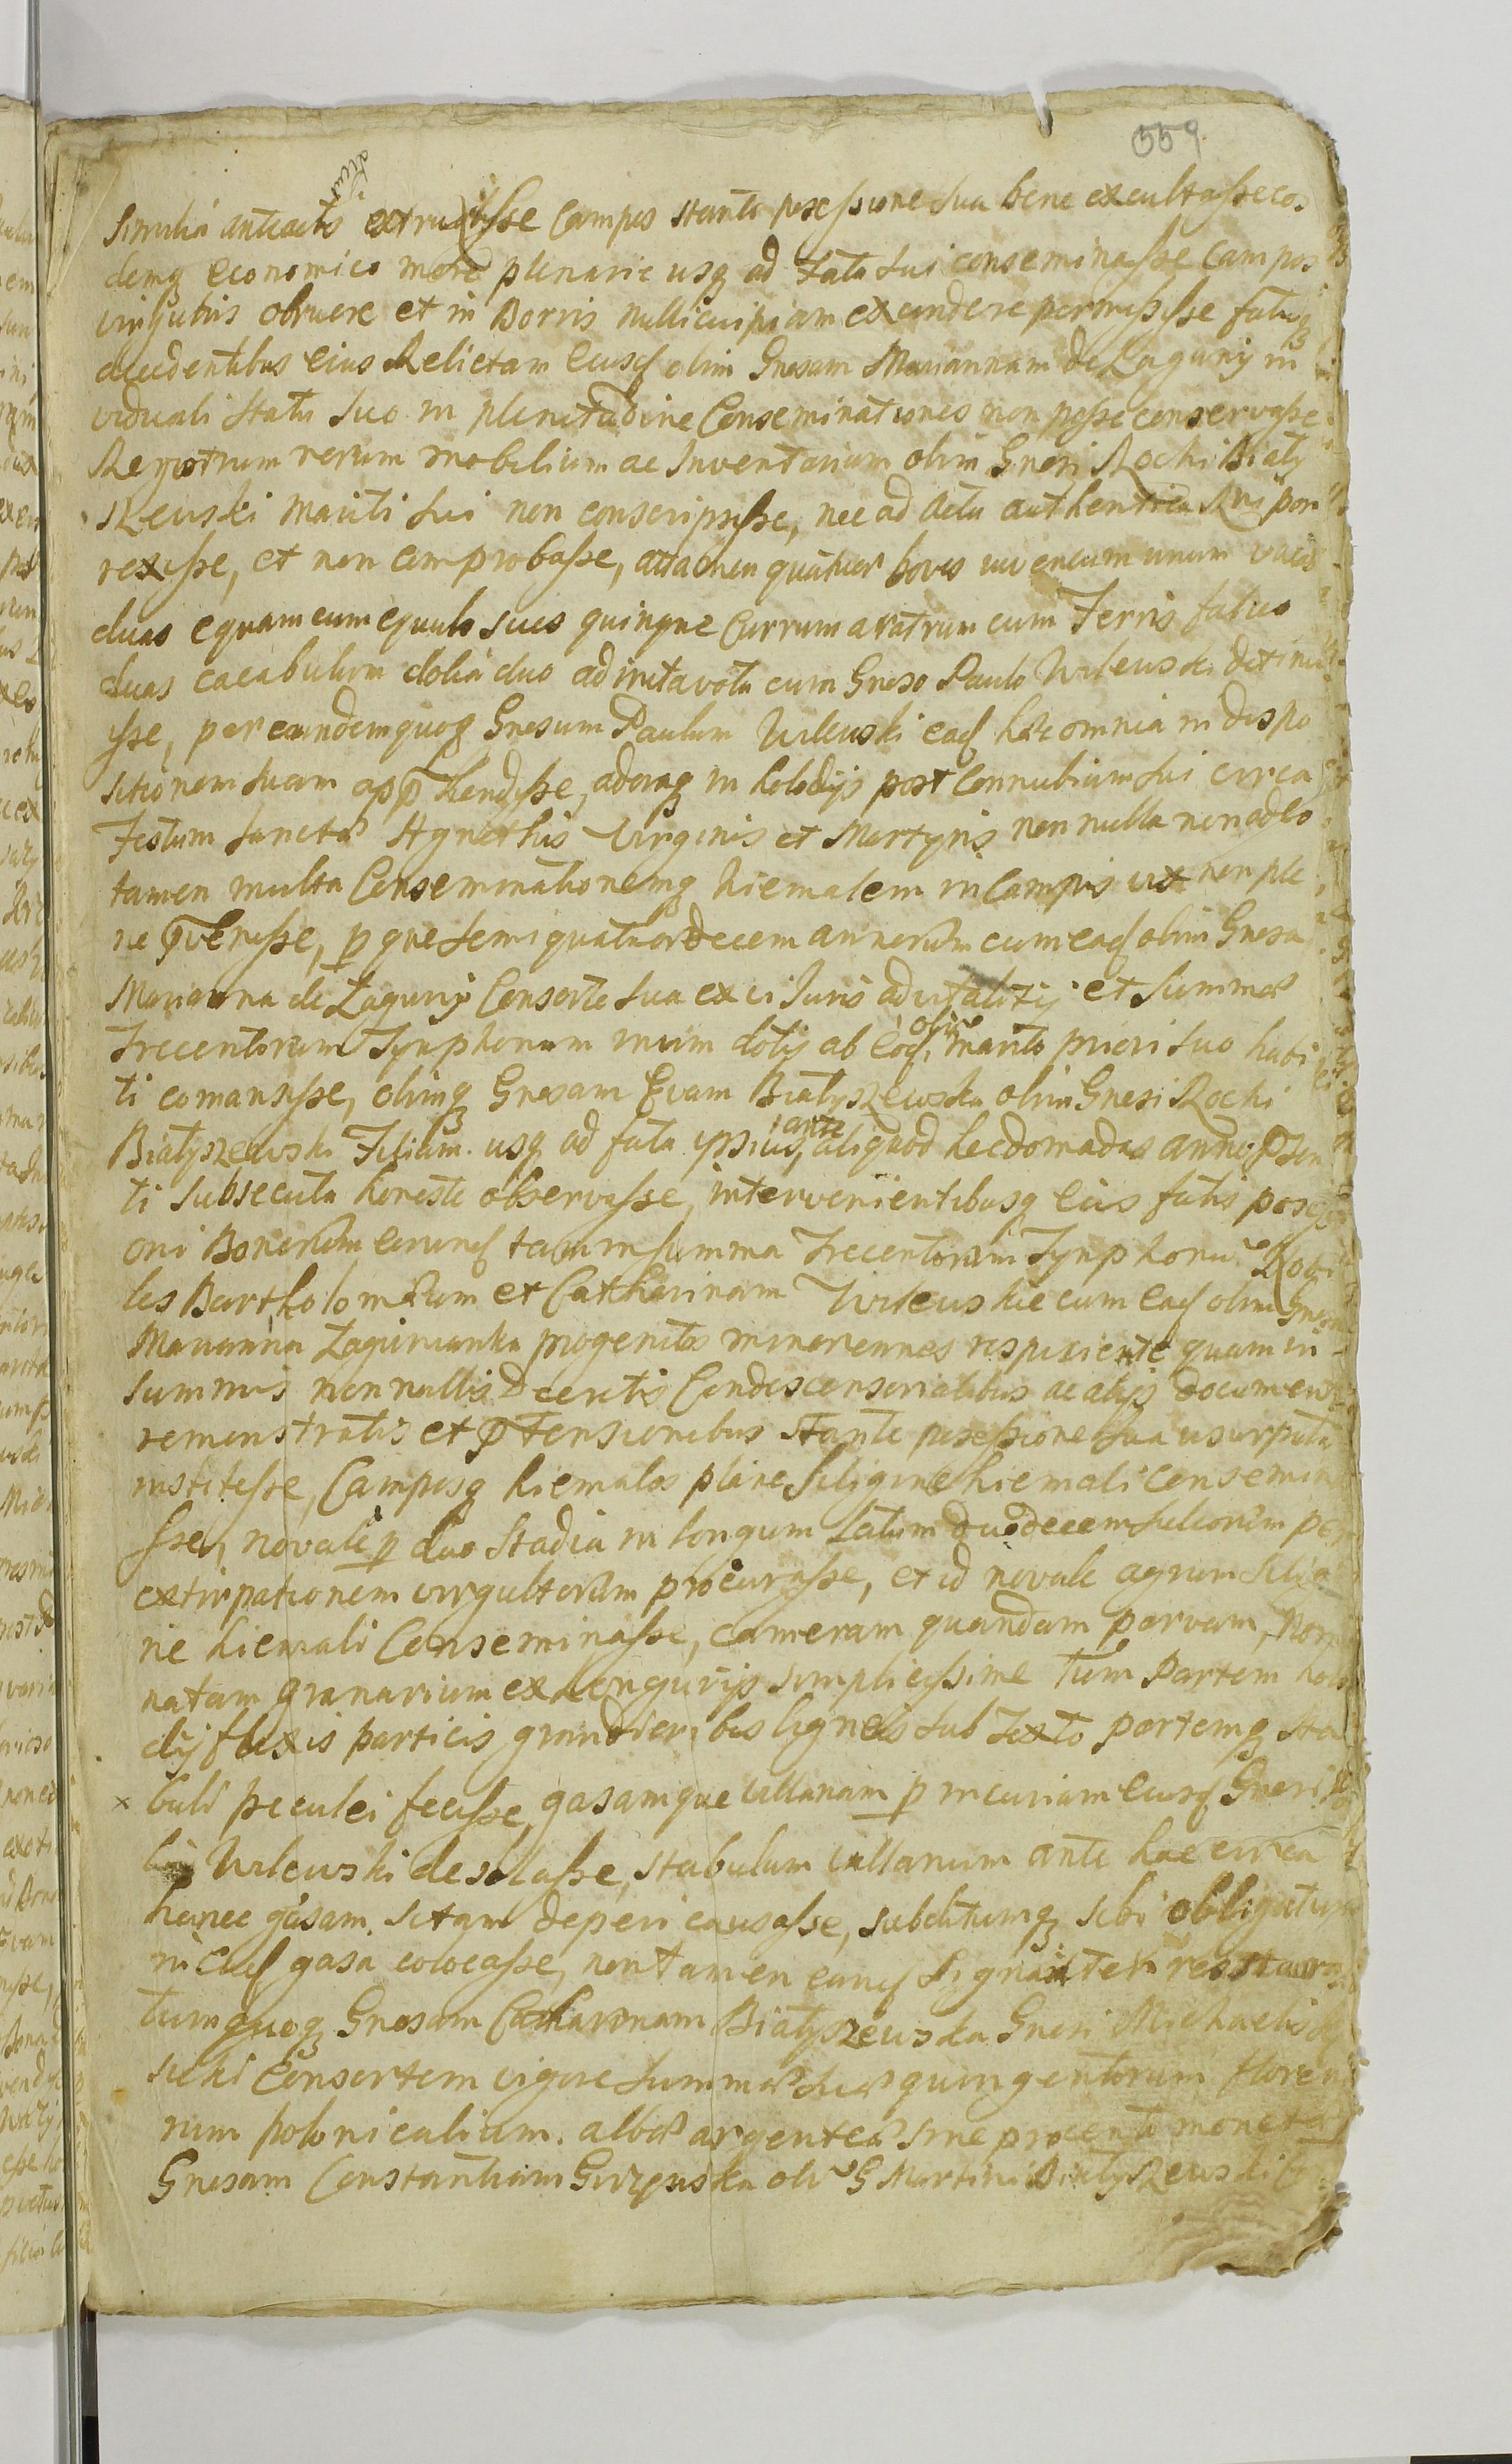 559
Similia anteactis extruxisse Campos stante possessione sua bene excultasse eos
demq economico more plenarie usq ad Fata sui conseminasse Campos
virgultis obruere et in Borris nullicuipiam excindere permisisse fatisq
accedentibus eius Relictam eiusd olim Gnosam Mariannam de Laguny in
viduali statu suo in plenitudine Conseminationes non posse conservasse
Regestrum rerum mobilium ac Inventarium olim Gnosi Rochi Biały
szewski mariti sui non conscripsisse, nec ad acta authentica Rni pori
rexisse, et non comprobasse, attamen quatuor boves iuvencum unum vacas
duas equam cum equulo sues quinque Currum aratrum cum Ferris falces
duas cacabulum dolia duo ad invitavota cum Gnoso Paulo Wilewski detinui
sse, per eundemquoq Gnosum Paulum Wilewski ead hæc omnia in dispo
sitionem suam apphendisse, adoraq in holodijs post Connubium sui circa
Festum Sanctæ Agnethis Virginis et Martyris non nulla non adeo
tamen multa Conseminationemq hiemalem in Campis vix non ple
ne invenisse, p que semiquatuordecem annorum cum ead olim Gnosa
Marianna de Laguny Consorte sua ex vi Iuris advitalitij et Summæ
Trecentorum Tynphonum vnim dotis ab eod olim marito priori suo habi
ti comansisse, olimq Gnosam Evam Białyszewska olim Gnosi Rochi
Białyszewski Filiam usq ad fata ipsius, ante aliquod hecdomadas anno psen
ti subsecuta honeste observasse, intervenientibusq eius fatis posessi
oni Bonorum eorund tam in summa Trecentorum Tynphonu Nobi
les Bartholomæum et Catharinam Wilewskie cum ead olim Gnosa
Marianna Laguniunka progenitos minorennes respiciente quam in
summis nonnullis Decretis Condescensorialibus ac alijs document
remonstratis et ptensionibus stante posessione sua usurpata
institisse, Camposq hiemales plane Siligine hiemali consemina
sse, novale p duo Stadia in longum Latum duodecem sulcorum per
extirpationem virgultorum procurasse, et id novale agrum silig
ne hiemali Conseminasse, cameram quandam parvam, nomi
natam granarium ex lengurijs simplicissime Tum Partem holo
dij fluxis particis grandioribus ligneis sub texto portemq sta
x buli peculei fecisse, gasamque villanam p incuriam eiusd Gnosi Pa
li Wilewski desolasse, stabulum villanum ante hac circa
hance gasam sitam deperi causasse, subditumq sibi obligatum
in ead gasa colocasse, non tamen eand signanter restaura
tum quoq Gnosam Catharinam Białyszewska Gnosi Michaelis
sicki Consortem vigore summæ suæ quingentorum floren
rum polonicalium albæ argenteæ sine procento monetæ
Gnosam Constantiam Gurzynska oli G Martini Białyszewski